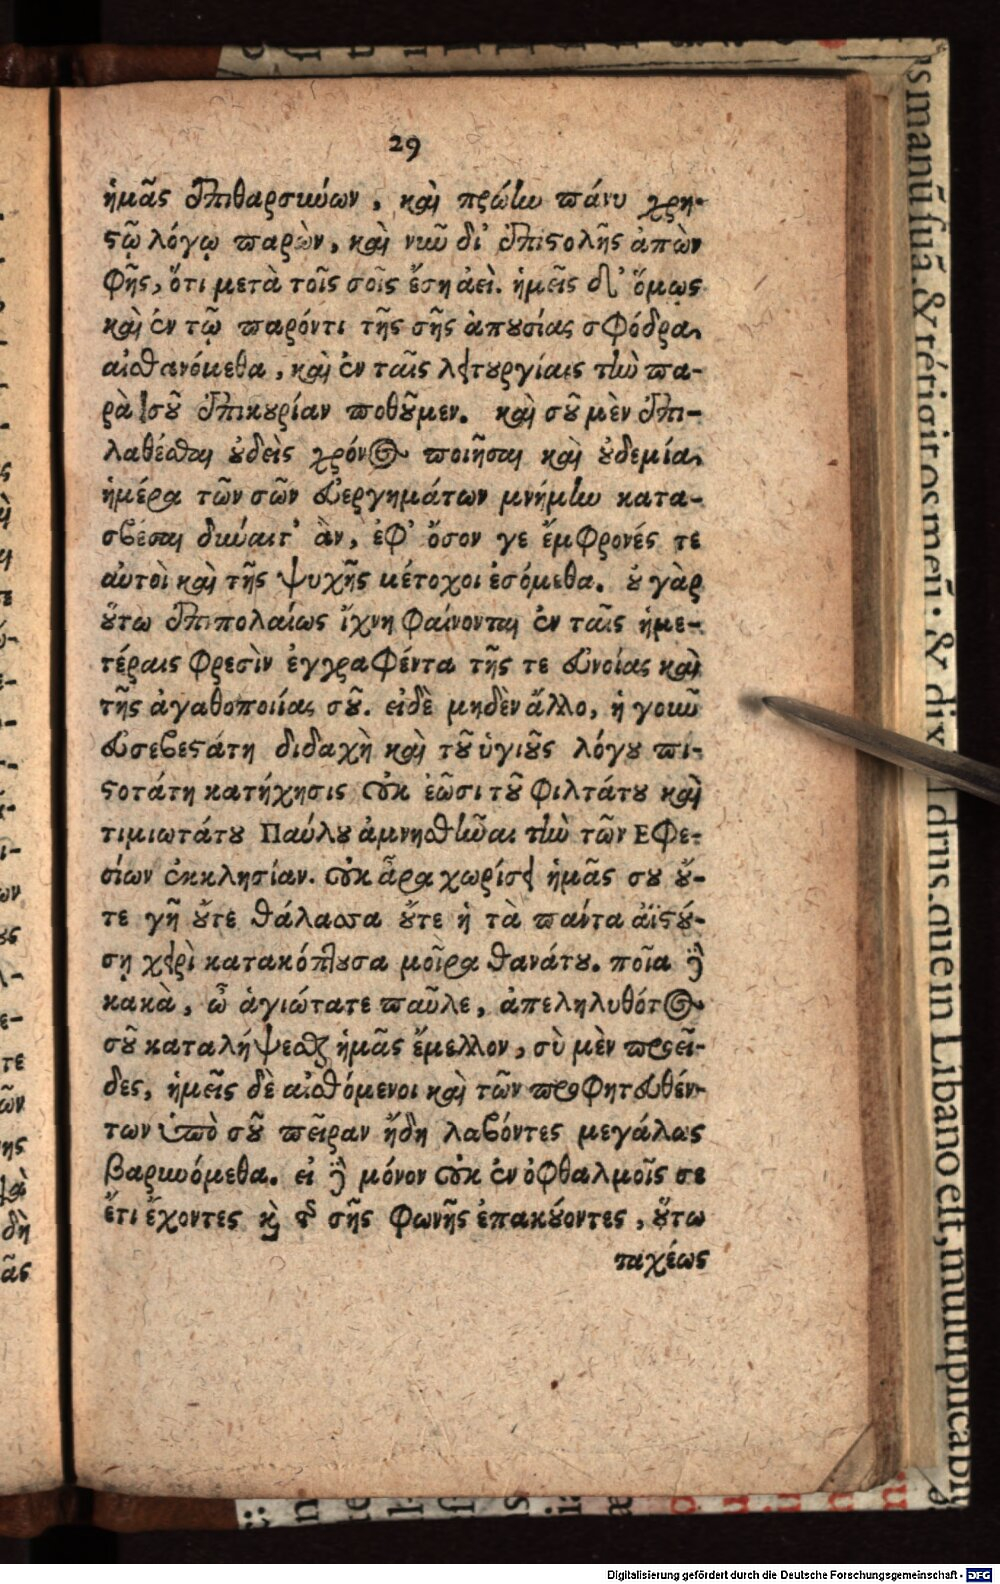 29
ἡμᾶς ἐπιθαρσιυύων, καὶ πρώτω πάνυ χρη-
στῷ λόγῳ παρὼν, καὶ νιῦ δι' ἐπιστολῆς ἀπὼν
φῂς, ὅτι μετὰ τοῖς σοῖς ἔσῃ ἀεί. ἡμεῖς δ' ὅμως
καὶ ἐν τῷ παρόντι τῆς σῆς ἀπουσίας σφόδρα
αἰσθανόμεθα, καὶ ἐν ταῖς λειτουργίαις τὴν πα-
ρὰ σοῦ ἐπικουρίαν ποθοῦμεν. καὶ σοῦ μὲν ἐπι-
λαθέσθαι οὐδεὶς χρόνος ποιῆσαι καὶ οὐδεμία
ἡμέρα τῶν σῶν εὐεργημάτων μνήμην κατα-
σβέσαι δύναιτ' ἂν, ἐφ' ὅσον γε ἔμφρονές τε
αὐτοὶ καὶ τῆς ψυχῆς μέτοχοι ἐσόμεθα. οὐ γὰρ
οὕτω ἐπιπολαίως ἴχνη φαίνονται ἐν ταῖς ἡμε-
τέραις φρεσὶν ἐγγραφέντα τῆς τε εὐνοίας καὶ
τῆς ἀγαθοποιίας σοῦ. εἰ δὲ μηδὲν ἄλλο, ἡ γοῦν
εὐσεβεστάτη διδαχὴ καὶ τοῦ ὑγιοῦς λόγου πι-
στοτάτη κατήχησις οὐκ ἐῶσι τοῦ φιλτάτου καὶ
τιμιωτάτου Παύλου ἀμνησθῆναι τὴν τῶν Ἐφε-
σίων ἐκκλησίαν. οὐκ ἆρα χωρίσει ἡμᾶς σου οὔ-
τε γῆ οὔτε θάλασσα οὔτε ἡ τὰ πάντα ἀϊστού-
σῃ χειρὶ κατακόπτουσα μοῖρα θανάτου. ποῖα δὲ
κακὰ, ὦ ἁγιώτατε παῦλε, ἀπεληλυθότος
σοῦ καταλήψεσθαι ἡμᾶς ἔμελλον, σὺ μὲν προεῖ-
δες, ἡμεῖς δὲ αἰσθόμενοι καὶ τῶν προφητευθέν-
των ὑπὸ σοῦ πεῖραν ἤδη λαβόντες μεγάλως
βαρυνόμεθα. εἰ δὲ μόνον οὐκ ἐν ὀφθαλμοῖς σε
ἔτι ἔχοντες καὶ τῆς σῆς φωνῆς ἐπακούοντες, οὕτω
ταχέως
Digitalisierung gefördert durch die Deutsche Forschungsgemeinschaft - DFG